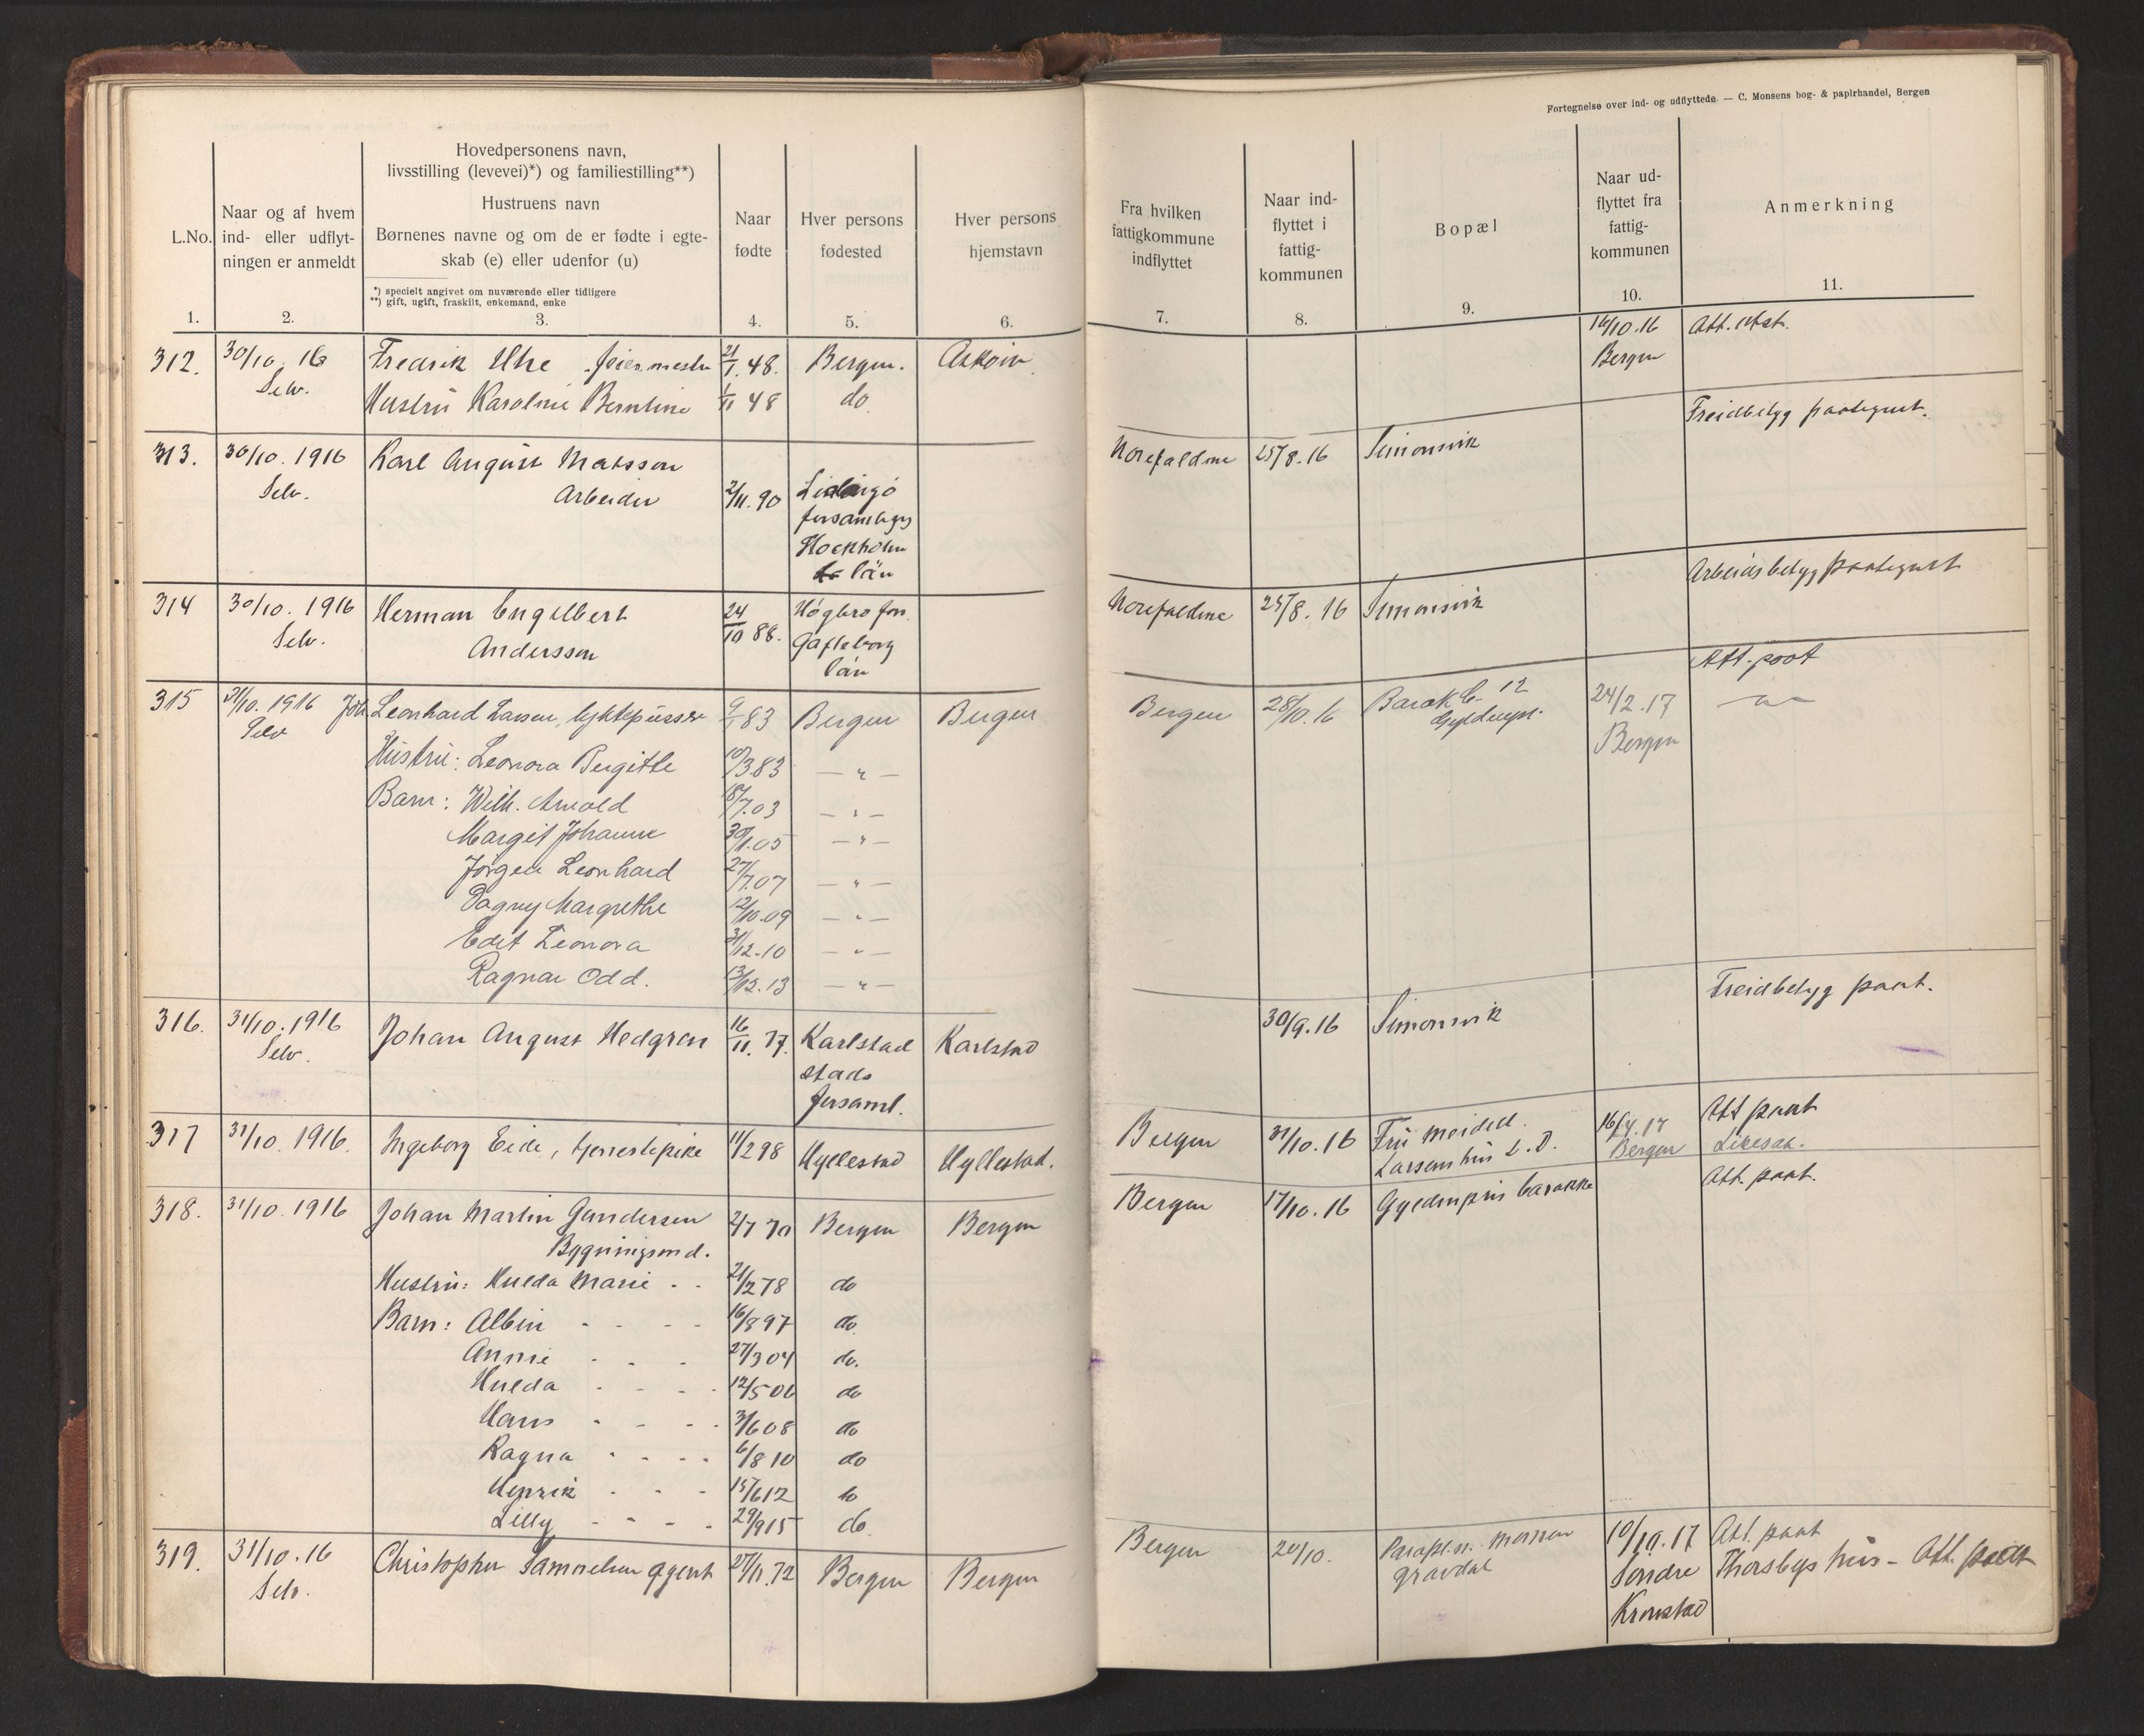 Fortegnelse over ind- og udflyttede. — C. Monsens bog- & papirhandel, Bergen
L.No.
1.
Naar og af hvem
ind- eller udflyt-
ningen er anmeldt
2.
Hovedpersonens navn,
livsstilling (levevei)*) og familiestilling**)
Hustruens navn
Børnenes navne og om de er fødte i egte-
skab (e) eller udenfor (u)
*) specielt angivet om nuværende eller tidligere
**) gift, ugift, fraskilt, enkemand, enke
3.
Naar
fødte
4.
Hver persons
fødested
5.
Hver persons
hjemstavn
6.
Fra hvilken
fattigkommune
indflyttet
7.
Naar ind-
flyttet i
fattig-
kommunen
8.
Bopæl
9.
Naar ud-
flyttet fra
fattig-
kommunen
10.
Anmerkning
11.
312. 30/10. 16 Fredrik Uhre feiermester 21/1.48. Bergen. Askøin. 16/10.16 Att. utst.
Selv. Hustru Karoline Berntine 1/11 48 do. Bergen
313. 30/10. 1916 Karl August Matsson Norefaldene 25/8.16 Simonsvik Freidbetyg paategnet.
Selv. Arbeider 2/11.90 Lidingö
forsamlings
Stockholm
län
314 30/10. 1916 Herman Engelbert 24/10 88. Högbro for. Norefaldene 25/8.16 Simonsvik Arbeidsbetyg paategnet
Selv. Andersson Gafleborg
län
315 31/10. 1916 Joh. Leonhard Larsen, lyktepusser 9/1 83 Bergen Bergen Bergen 28/10.16 Barak C. 12 24/2.17 Att. paat
Selv Gyldenpr. Bergen — " —
Hustru: Leonora Birgitte 10/3 83 — " —
Barn: Wilh. Arnold 18/7.03 — " —
Margit Johanne 30/1.05 — " —
Jørgen Leonhard 27/7.07 — " —
Dagny Margrethe 12/10.09 — " —
Edit Leonora 31/12.10 — " —
Ragnar Odd. 13/12.13 — " —
316. 31/10. 1916 Johan August Hedgren 16/11.77. Karlstad Karlstad 30/9.16 Simonsvik Freidbetyg paat.
Selv. stads
forsaml.
317 31/10. 1916. Ingeborg Eide, tjenestepike 11/2 98 Hyllestad Hyllestad. Bergen 31/10.16 Fru Meidell. 16/4.17 Att paat
Larsens hus L.D. Bergen
318. 31/10. 1916 Johan Martin Gundersen 2/7 70 Bergen Bergen Bergen 17/10.16 Gyldenpris barakke Att. paat.
Bygningsmd.
Hustru: Hulda Marie 21/2 78 do
Barn: Albin 16/8 97 do
Annie 27/3 04 do.
Hulda 12/5 06 do
Hans 3/6 08 do
Ragna 6/8 10 do
Henrik 15/6 12 do
Lilly 29/9 15 do.
319. 31/10.16 Christopher Samuelsen agent 27/11.72 Bergen Bergen Bergen 20/10. Monsen 10/10.17 Att. paat
Selv. Gravdal Søndre Thorsbys hus - Att. paat
Kronstad